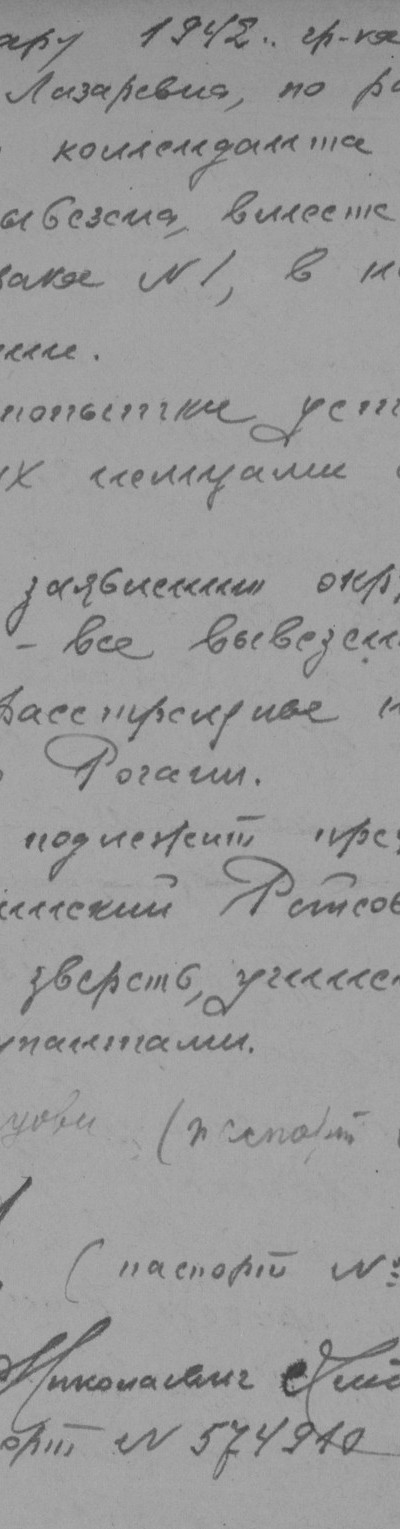 ару 1942.. гр-ка
Лазаревна, по ра
коменданта
ывезена, вместе
вака N 1, в н
нии.
попытке уст
ых немцами
заявлению окр
- все вывезен
расстреляные н
Рогани.
подлежит пре
инский Райсов
зверств, учинен
упантами.
(паспорт
( паспорт №
Николаевич
орт N 574910